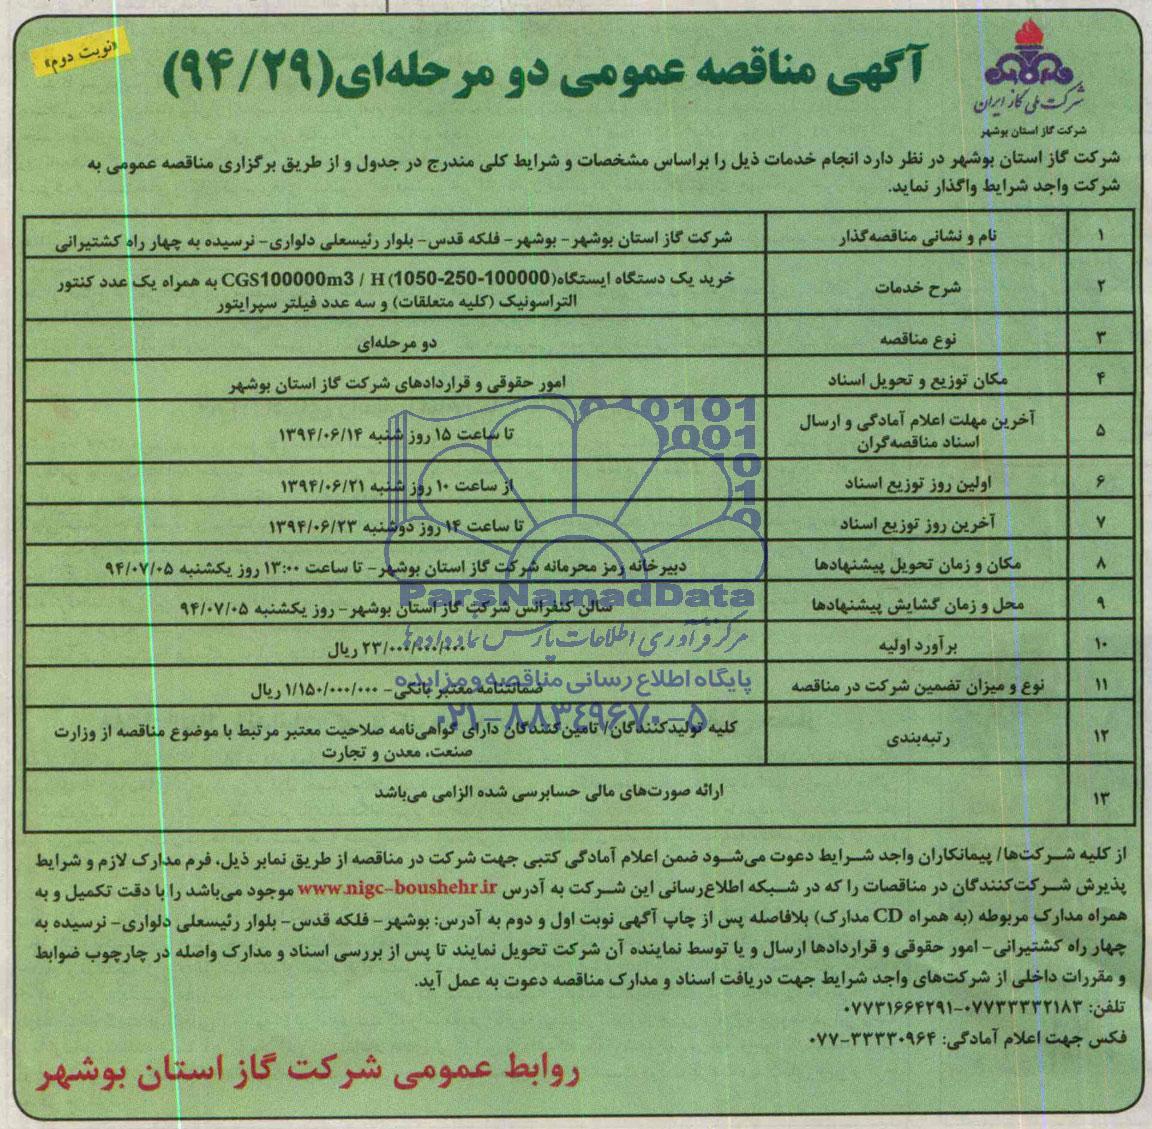 «نوبت دوم»
آگهی مناقصه عمومی دو مرحله‌ای(۹۴/۲۹)
شرکت ملی گاز ایران
شرکت گاز استان بوشهر
شرکت گاز استان بوشهر در نظر دارد انجام خدمات ذیل را براساس مشخصات و شرایط کلی مندرج در جدول و از طریق برگزاری مناقصه عمومی به
شرکت واجد شرایط واگذار نماید.
۱ نام و نشانی مناقصه‌گذار شرکت گاز استان بوشهر- بوشهر- فلکه قدس- بلوار رئیسعلی دلواری- نرسیده به چهار راه کشتیرانی
۲ شرح خدمات خرید یک دستگاه ایستگاه(CGS100000m3 / H (1050-250-100000 به همراه یک عدد کنتور
التراسونیک (کلیه متعلقات) و سه عدد فیلتر سپرایتور
۳ نوع مناقصه دو مرحله‌ای
۴ مکان توزیع و تحویل اسناد امور حقوقی و قراردادهای شرکت گاز استان بوشهر
۵ آخرین مهلت اعلام آمادگی و ارسال
اسناد مناقصه‌گران تا ساعت ۱۵ روز شنبه ۱۳۹۴/۰۶/۱۴
۶ اولین روز توزیع اسناد از ساعت ۱۰ روز شنبه ۱۳۹۴/۰۶/۲۱
۷ آخرین روز توزیع اسناد تا ساعت ۱۴ روز دوشنبه ۱۳۹۴/۰۶/۲۳
۸ مکان و زمان تحویل پیشنهادها دبیرخانه رمز محرمانه شرکت گاز استان بوشهر- تا ساعت ۱۳:۰۰ روز یکشنبه ۹۴/۰۷/۰۵
۹ محل و زمان گشایش پیشنهادها سالن کنفرانس شرکت گاز استان بوشهر- روز یکشنبه ۹۴/۰۷/۰۵
۱۰ برآورد اولیه ۲۳/۰۰۰/۰۰۰/۰۰۰ ریال
۱۱ نوع و میزان تضمین شرکت در مناقصه ضمانتنامه معتبر بانکی- ۱/۱۵۰/۰۰۰/۰۰۰ ریال
۱۲ رتبه‌بندی کلیه تولیدکنندگان/ تامین‌کنندگان دارای گواهی‌نامه صلاحیت معتبر مرتبط با موضوع مناقصه از وزارت
صنعت، معدن و تجارت
۱۳ ارائه صورت‌های مالی حسابرسی شده الزامی می‌باشد
ParsNamadData
مرکز فرآوری اطلاعات پارس نماد داده‌ها
پایگاه اطلاع رسانی مناقصه و مزایده
۰۲۱-۸۸۳۴۹۶۷۰-۵
از کلیه شرکت‌ها/ پیمانکاران واجد شرایط دعوت می‌شود ضمن اعلام آمادگی کتبی جهت شرکت در مناقصه از طریق نمابر ذیل، فرم مدارک لازم و شرایط
پذیرش شرکت‌کنندگان در مناقصات را که در شبکه اطلاع‌رسانی این شرکت به آدرس www.nigc-boushehr.ir موجود می‌باشد را با دقت تکمیل و به
همراه مدارک مربوطه (به همراه CD مدارک) بلافاصله پس از چاپ آگهی نوبت اول و دوم به آدرس: بوشهر- فلکه قدس- بلوار رئیسعلی دلواری- نرسیده به
چهار راه کشتیرانی- امور حقوقی و قراردادها ارسال و یا توسط نماینده آن شرکت تحویل نمایند تا پس از بررسی اسناد و مدارک واصله در چارچوب ضوابط
و مقررات داخلی از شرکت‌های واجد شرایط جهت دریافت اسناد و مدارک مناقصه دعوت به عمل آید.
تلفن: ۰۷۷۳۳۳۳۲۱۸۳-۰۷۷۳۱۶۶۴۲۹۱
فکس جهت اعلام آمادگی: ۰۷۷-۳۳۳۳۰۹۶۴
روابط عمومی شرکت گاز استان بوشهر